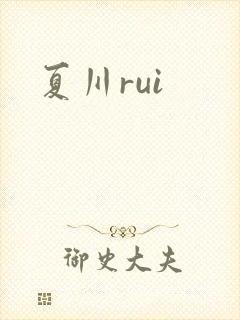 夏川rui
御史大夫